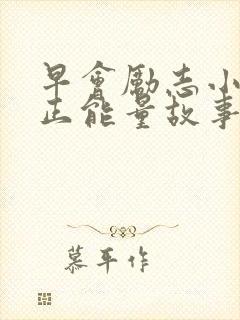 早會勵志小
正能量故事
慕平作